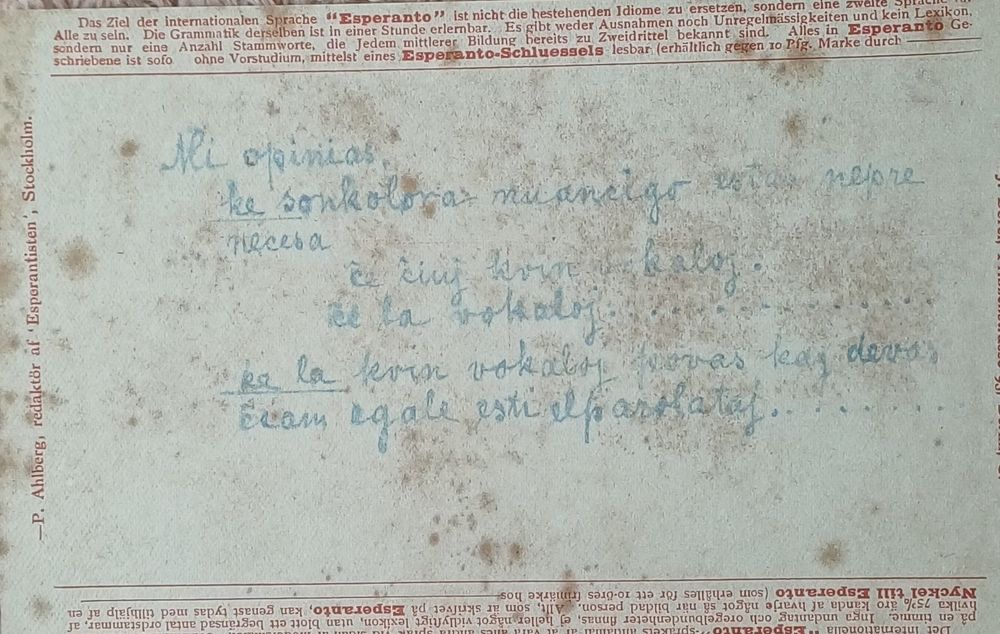 Das Ziel der internationalen Sprache "Esperanto" ist nicht die bestehenden Idiome zu ersetzen, sondern eine zweite Sprache
Alle zu sein. Die Grammatik derselben ist in einer Stunde erlernbar. Es gibt weder Ausnahmen noch Unregelmässigkeiten und kein Lexikon,
sondern nur eine Anzahl Stammworte, die Jedem mittlerer Bildung bereits zu Zweidrittel bekannt sind. Alles in Esperanto Ge-
schriebene ist sofo ohne Vorstudium, mittelst eines Esperanto-Schluessels lesbar (erhältlich gegen 10 Pfg. Marke durch
—P. Ahlberg, redaktör af 'Esperantisten', Stockholm.
Mi opinias,
ke sonkoloras nuancigo estas nepre
necesa
ĉe ĉiuj kvin vokaloj.
ĉe la vokaloj. . . . . . . . . . . .
ke la kvin vokaloj povas kaj devas
ĉiam egale esti elparolataj. . . . . . . .
på en timme. Inga undantag och oregelbundenheter finnas, ej heller något vidlyftigt lexikon, utan blott ett begränsad antal ordstammar, af
hvilka 75% äro kända af hvarje något så när bildad person. Allt, som är skrifvet på Esperanto, kan genast tydas med tillhjälp af en
Nyckel till Esperanto (som erhålles för ett 10-öres frimärke hos